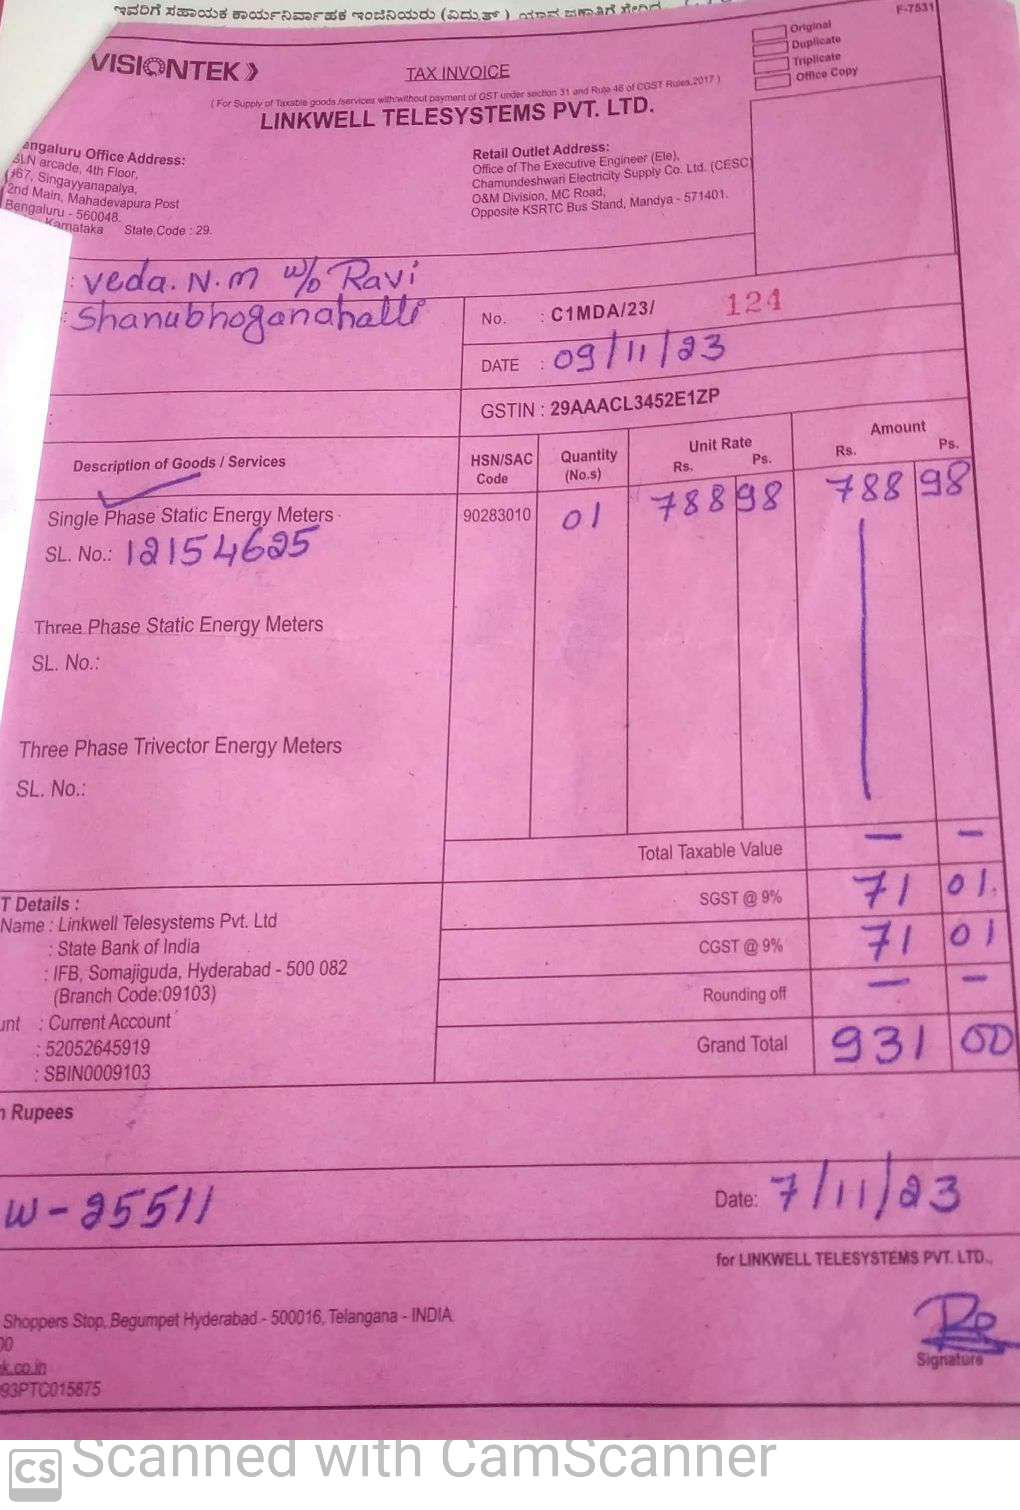 ಇವರಿಗೆ ಸಹಾಯಕ ಕಾರ್ಯನಿರ್ವಾಹಕ ಇಂಜಿನಿಯರು (ವಿದ್ಯುತ್)
F-7531
VISIONTEK
TAX INVOICE
Original
Duplicate
Triplicate
Office Copy
( For Supply of Taxable goods /services with/without payment of GST under section 31 and Rule 46 of CGST Rules,2017 )
LINKWELL TELESYSTEMS PVT. LTD.
engaluru Office Address:
SLN arcade, 4th Floor,
#67, Singayyanapalya,
2nd Main, Mahadevapura Post
Bengaluru - 560048.
Karnataka State Code : 29.
Retail Outlet Address:
Office of The Executive Engineer (Ele),
Chamundeshwari Electricity Supply Co. Ltd. (CESC)
O&M Division, MC Road,
Opposite KSRTC Bus Stand, Mandya - 571401.
: Veda. N. m w/o Ravi
: Shanubhoganahalli
No. : C1MDA/23/ 124
DATE : 09/11/23
:
GSTIN : 29AAACL3452E1ZP
Description of Goods / Services
HSN/SAC Code
Quantity (No.s)
Unit Rate
Rs. Ps.
Amount
Rs. Ps.
Single Phase Static Energy Meters 90283010 01 788 98 788 98
SL. No.: 12154625
Three Phase Static Energy Meters
SL. No.:
Three Phase Trivector Energy Meters
SL. No.:
Total Taxable Value — —
SGST @ 9% 71 01.
CGST @ 9% 71 01
Rounding off — —
Grand Total 931 00
T Details :
Name : Linkwell Telesystems Pvt. Ltd
: State Bank of India
: IFB, Somajiguda, Hyderabad - 500 082
(Branch Code:09103)
unt : Current Account
: 52052645919
: SBIN0009103
n Rupees
W-25511
Date: 7/11/23
for LINKWELL TELESYSTEMS PVT. LTD.,
Shoppers Stop, Begumpet Hyderabad - 500016, Telangana - INDIA
00
k.co.in
93PTC015875
Signature
CS Scanned with CamScanner